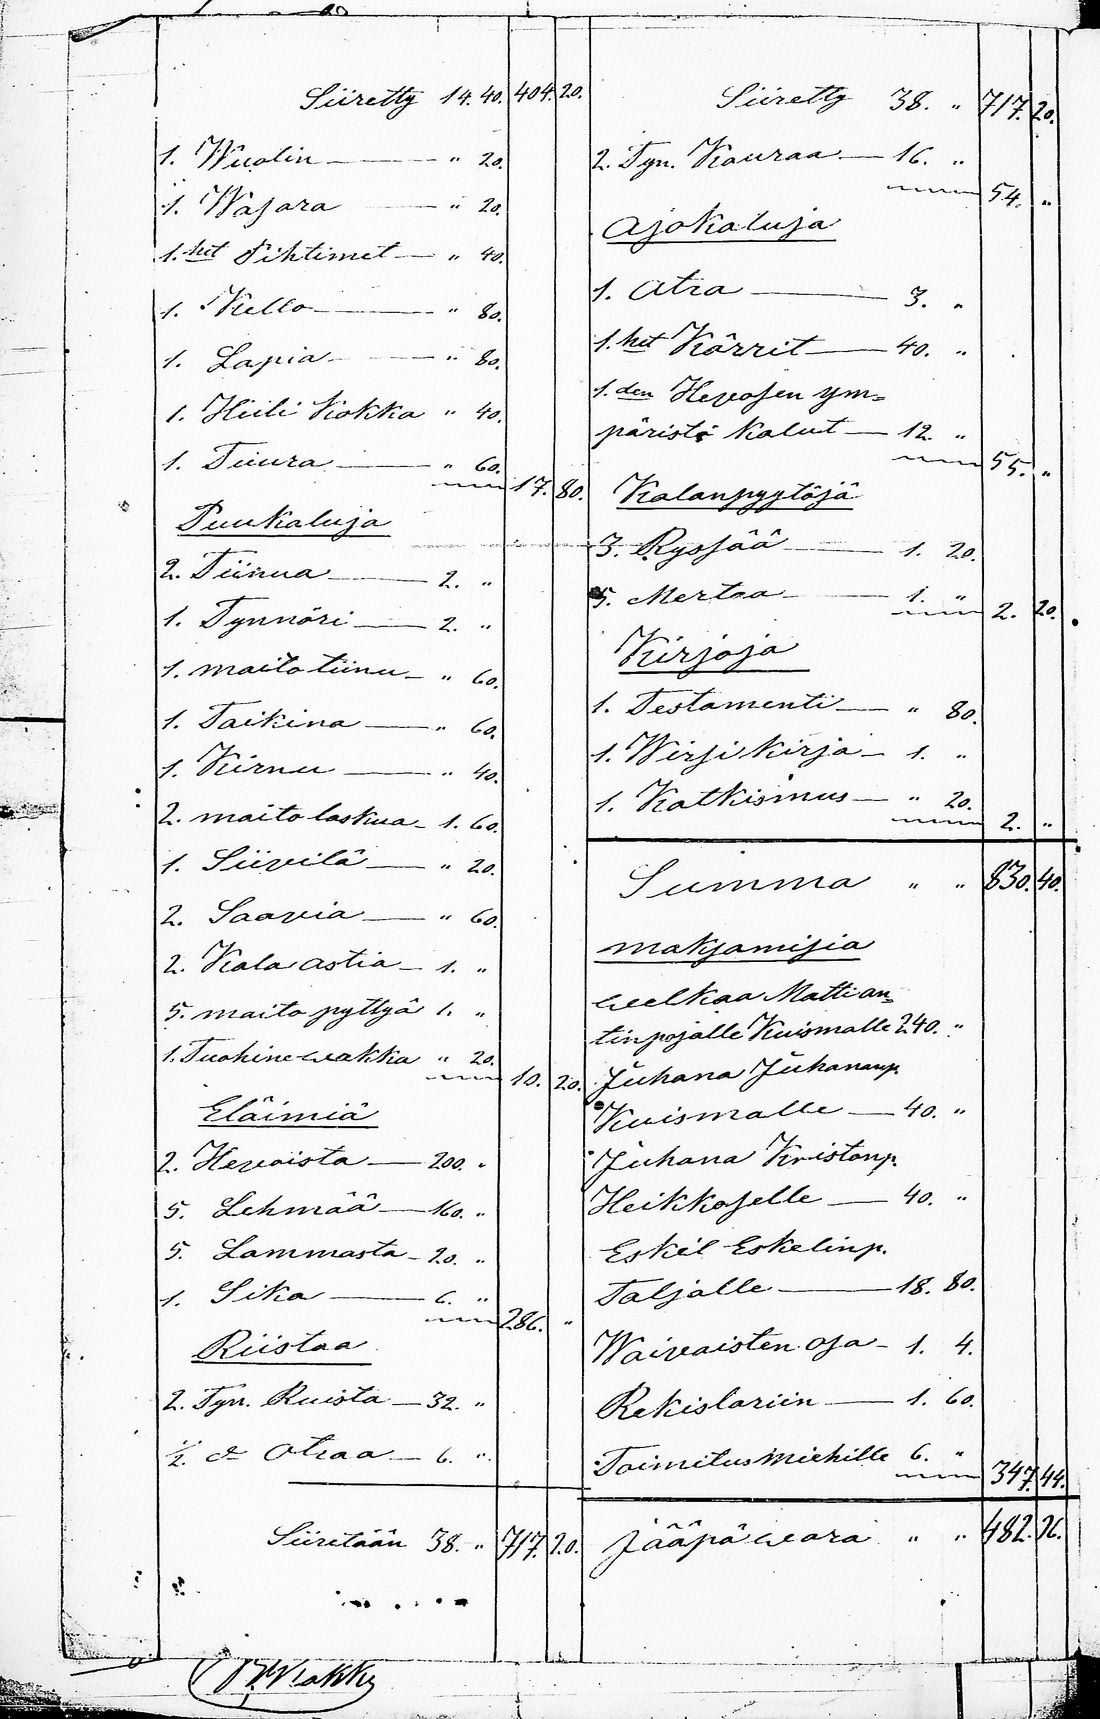 Siiretty 14. 40. 404. 20.
1. Wuolin — " 20.
1. Wasara — " 20.
1. het Pihtimet — " 40.
1. Kello — " 80.
1. Lapia — " 80.
1. Hiili Kokka " 40.
1. Tuura — " 60.
17. 80.
Puukaluja
2. Tiinua — 2. "
1. Tynnöri — 2. "
1. maito tiinu — " 60.
1. Taikina — " 60.
1. Kirnu — " 40.
2. maito laskua — 1. 60.
1. Siivilä — " 20.
2. Saavia — " 60.
2. Kala astia — 1. "
5. maito pyttyä 1. "
1. Tuohinewakka " 20.
10. 20.
Eläimiä
2. Hevoista — 200. "
5. Lehmää — 160. "
5. Lammasta — 20. "
1. Sika — 6. "
286. "
Riistaa
2. Tyn. Ruista — 32. "
1/2 d:o Otraa — 6. "
Siiretään 38. " 717. 20.
Siiretty 38. " 717. 20.
2. Tyn. Kauraa — 16. "
54. "
Ajokaluja
1. Atra — 3. "
1. het Kärrit — 40. "
1. den Hevosen ym=
päristö kalut — 12. "
55. "
Kalanpyytöjä
3. Rysjää — 1. 20.
5. Mertaa — 1. "
2. 20.
Kirjoja
1. Testamenti — " 80.
1. Wirsikirja — 1. "
1. Katkismus — " 20.
2. "
Summa " " 830. 40.
maksamisia
welkaa Matti an=
tinpojalle Kuismalle 240. "
Juhana Juhananp.
Kuismalle — 40. "
Juhana Kristanp.
Heikkoselle — 40. "
Eskel Eskelinp.
Taljalle — 18. 80.
Waivaisten osa — 1. 4.
Rekislariin — 1. 60.
Toimitus miehille 6. "
347. 44.
Jääpä wara " " 482. 96.